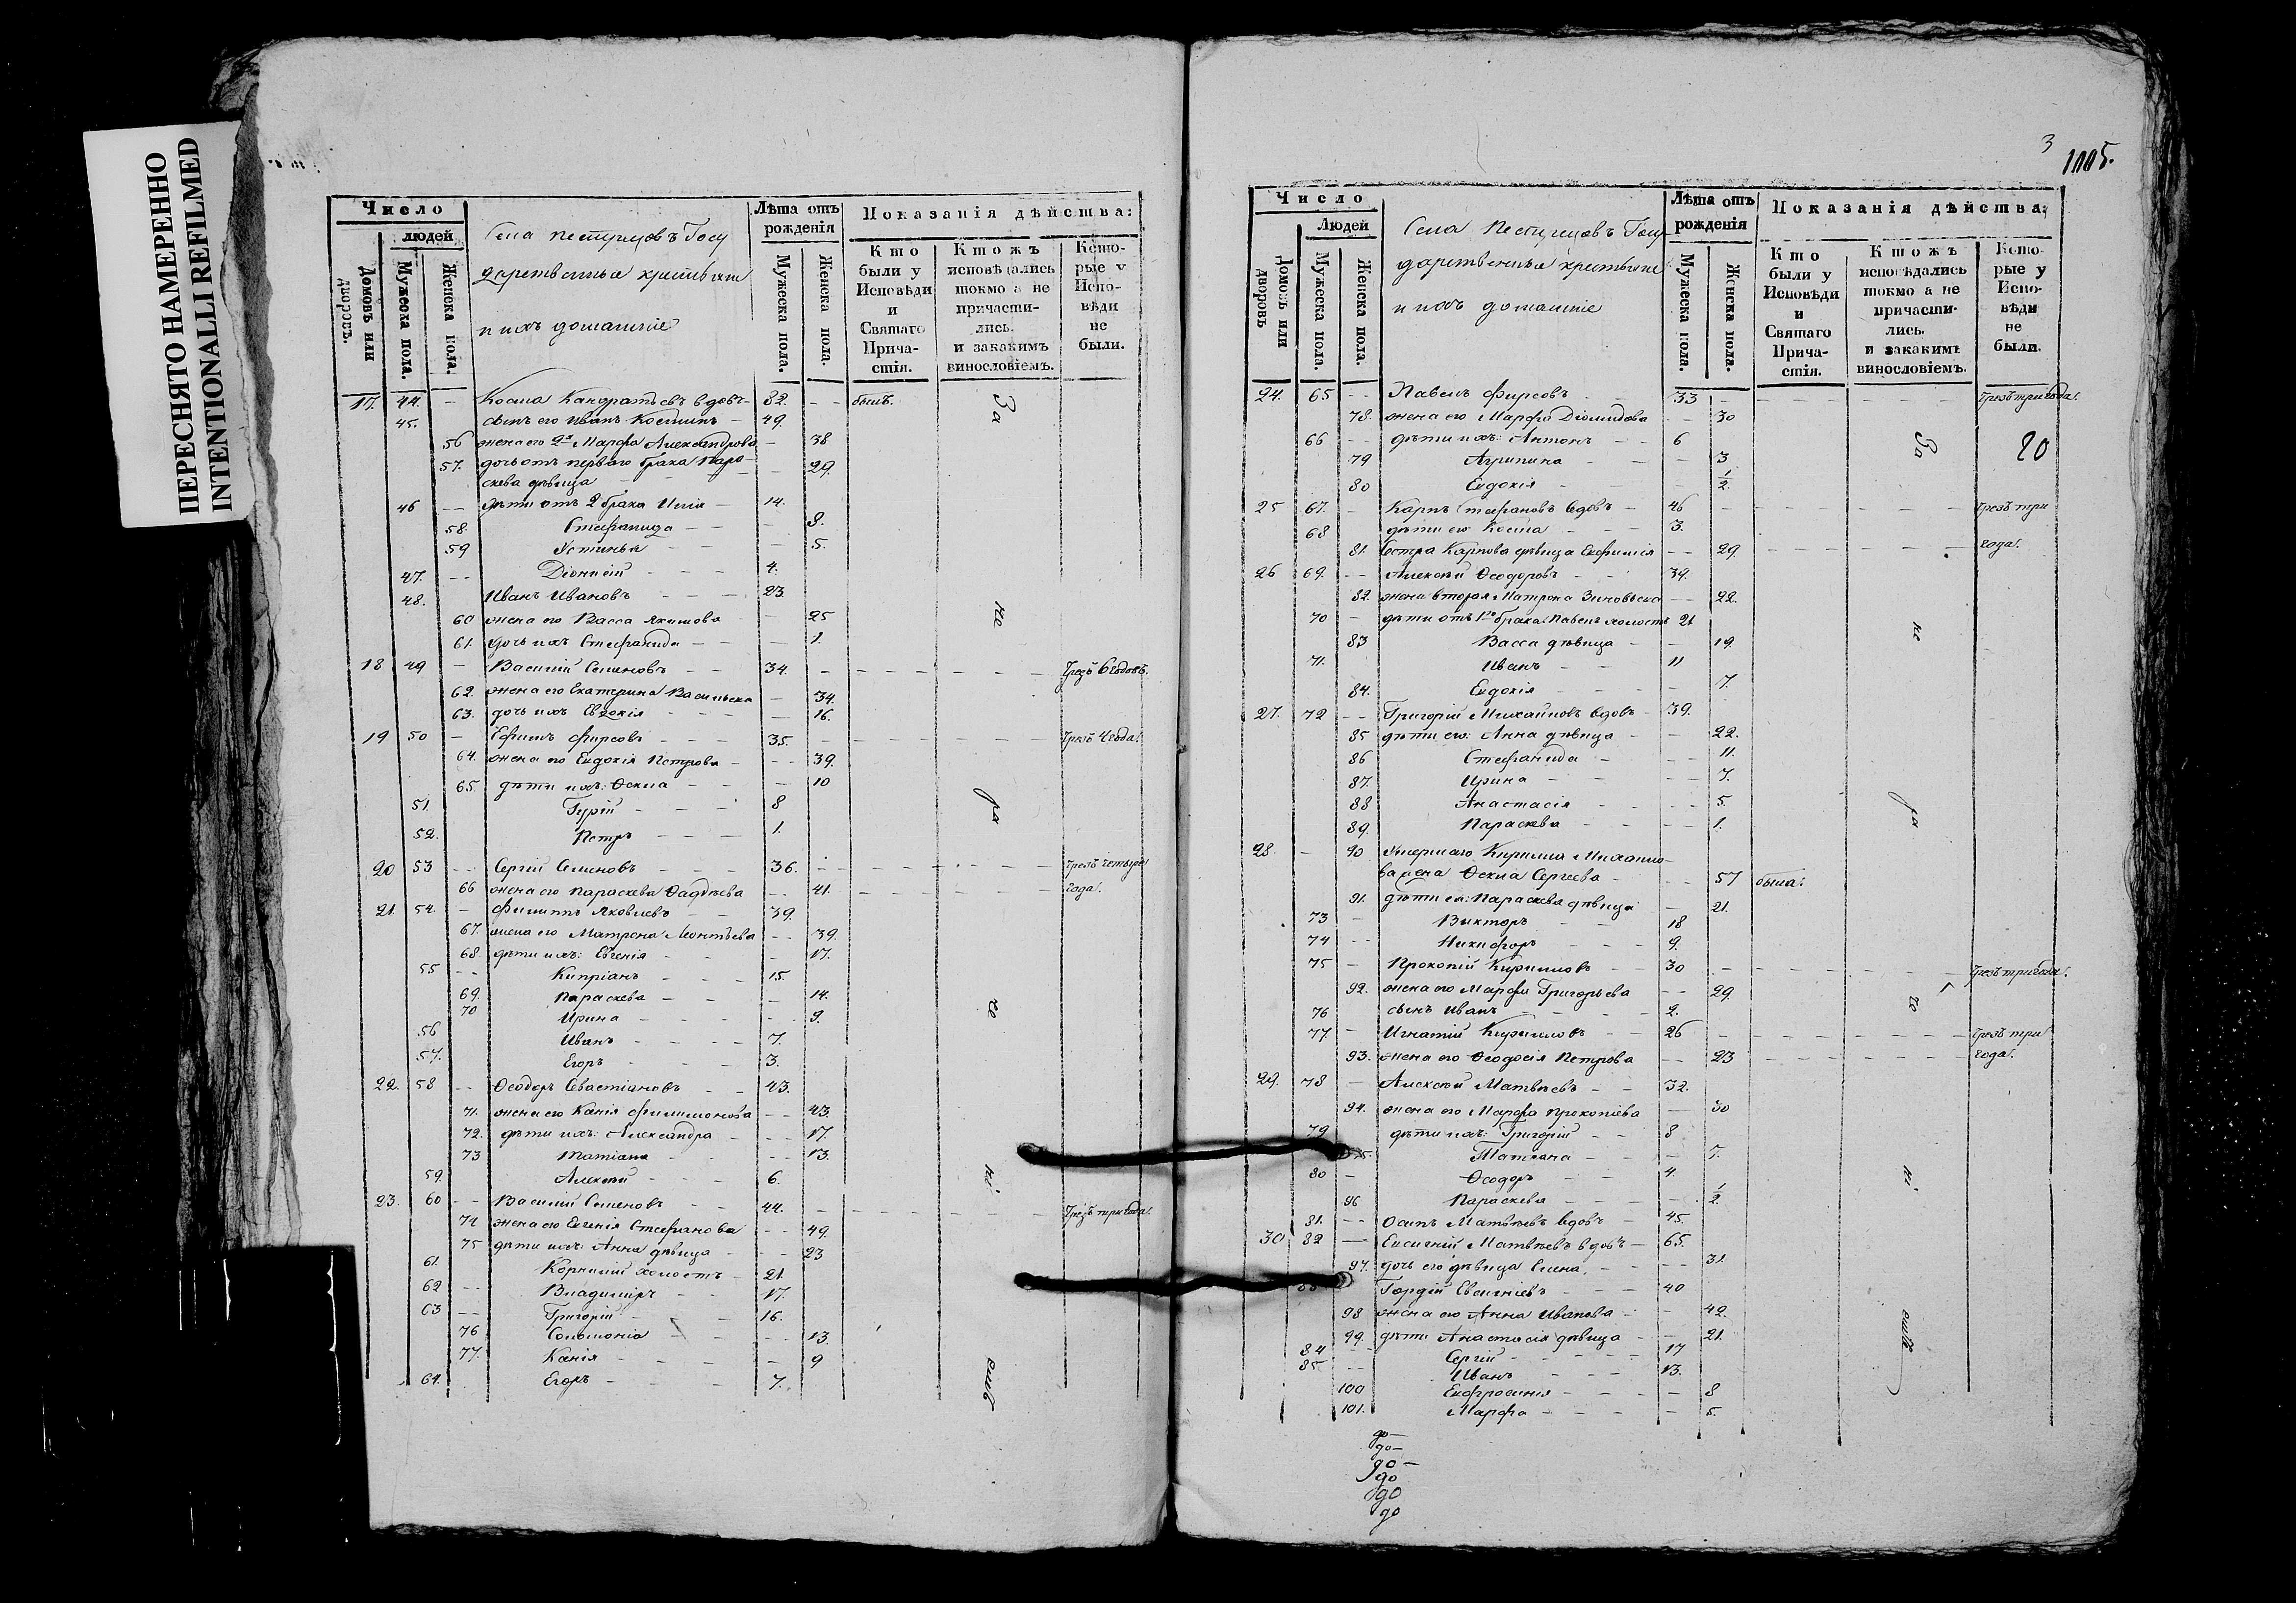 ПЕРЕСНЯТО НАМЕРЕННО
INTENTIONALLI REFILMED
Число
людей
Домовъ или дворовъ.
Мужеска пола.
Женска пола.
Села Пестрецовъ Госу
дарственныя крестьяне
и ихъ домашніе
Лѣта отъ рожденія
Мужеска пола.
Женска пола.
Показанія дѣйства:
Кто были у Исповѣди и Святаго Причастія.
Ктожъ исповѣдались токмо а не причастились. и закакимъ винословіемъ.
Которые у Исповѣди не были.
17. 44. — Косма Кандратьевъ вдовъ — 82. — — былъ.
45. сынъ его Иванъ Костинъ — 49.
56 жена его 2я Марфа Александрова — 38
57. дочь отъ перваго брака Пара-
скева дѣвица — 29.
46 — — дѣти отъ 2 брака Илія — 14.
58. Стефанида — — — 8.
59 Устинья — — — 5.
47. — — Діонисій — — — 4.
48. Иванъ Ивановъ — — — 23
60 жена его Васса Якимова — 25
61. дочь ихъ Стефанида — — — 1.
18 49 — Василій Семеновъ — — 34. — — — — — — Чрезъ 6 годовъ.
62. жена его Екатерина Васильева — 34.
63. дочь ихъ Евдокія — — — — 16.
19 50 — Ефимъ Фирсовъ — — — 35. — — — — — — Чрезъ 4 года.
64. жена его Евдокія Петрова — — — 39.
65. дѣти ихъ: Фекла — — — 10
51. Гурій — — — 8
52. Петръ — — — 1.
20 53 — — Сергій Семеновъ — — — 36. — — — — — — чрезъ четыре
66 жена его Параскева Фадѣева — — 41. — — — — — — года.
21. 54. — Филиппъ Яковлевъ — — 39.
67. жена его Матрона Леонтьева — — 39.
68. дѣти ихъ: Евгенія — — — 17.
55 — — Кипріанъ — — — 15.
69. Параскева — — — 14.
70 Ирина — — — — 9.
56 Иванъ — — — — 7.
57. Егоръ — — — 3.
22. 58 — — Феодоръ Севастіановъ — — 43.
71. жена его Ксенія Филимонова — — 43.
72. дѣти ихъ: Александра — — — 17.
73 Татіана — — — — 13.
59. Алексѣй — — — 6.
23. 60 — — Василій Семеновъ — — 44. — — — — — — Чрезъ три года.
74 жена его Евгенія Стефанова — — 49.
75 дѣти ихъ: Анна дѣвица — — — 23
61. Корнилій холостъ — 21.
62 — — Владимиръ — — 17.
63 — — Григорій — — — 16.
76 Соломонія — — — — 13.
77. Ксенія — — — — 9
64. Егоръ — — — — 7.
За
не
ра
че
ні
емъ
3
1005.
Число
Людей
Домовъ или дворовъ
Мужеска пола.
Женска пола.
Села Пестрецовъ Госу-
дарственныя крестьяне
и ихъ домашніе
Лѣта отъ рожденія
Мужеска пола.
Женска пола.
Показанія дѣйства:
Кто были у Исповѣди и Святаго Причастія.
Ктожъ исповѣдались токмо а не причастились. и закакимъ винословіемъ.
Которые у Исповѣди не были.
24. 65 — — Павелъ Фирсовъ 33 — — — — — — Чрезъ три года.
78. жена его Марфа Діомидова — — 30
66 — — дѣти ихъ: Антонъ — — 6
20
79 Агрипина — — — 3
80 Евдокія — — — 1/2.
25 67. — Карпъ Стефановъ вдовъ — 46 — — — — — — Чрезъ три
68 дѣти его Косма — — — 3.
81. Сестра Карпова дѣвица Евфимія — — 29. — — — — — — года.
26 69. — — Алексѣй Феодоровъ — — 39.
82. жена вторая Матрона Зиновьева — — 22.
70 — дѣти отъ 1го брака Павелъ холостъ 21
83 Васса дѣвица — — 19.
71. Иванъ — — 11
84. Евдокія — — — — 7.
27. 72 — — Григорій Михайловъ вдовъ — 39.
85 дѣти его: Анна дѣвица — — 22.
86 Стефанида — — — 11.
87. Ирина — — — 7.
88 Анастасія — — — 5.
89. Параскева — — — — 1.
28. — 90 Умершаго Кирилла Михайло-
ва жена Фекла Сергеева — — — 57 была.
91. дѣти ея: Параскева дѣвица — 21.
73 — Викторъ — — 18
74 — — Никифоръ — — — 9.
75 — Прокопій Кириловъ — — 30 — — — — — — Чрезъ три года.
92. жена его Марфа Григорьева — — 29.
76 сынъ Иванъ — — — — 2.
77. — Игнатій Кириловъ — — 26 — — — — — — Чрезъ три
93. жена его Феодосія Петрова — — 23 — — — — — — года.
29. 78 — Алексѣй Матвѣевъ — — 32.
94. жена его Марфа Прокопіева — 30
79 дѣти ихъ: Григорій — — 8
95. Татіана — — — 7.
80 — Феодоръ — — — 4.
96 Параскева — — — — 1/2
81. — — Осипъ Матвѣевъ вдовъ — 45.
30 82 — Евсигній Матвѣевъ вдовъ — 65.
97. дочь его дѣвица Елена — — — — 31.
83 Гордій Евсигніевъ — — — 40
98 жена его Анна Иванова — — 42.
99. дѣти Анастасія дѣвица — — 21.
84 — — Сергій — — — — 17
85 — — Иванъ — — — 13.
100 Евфросинія — — — — 8
101. Марфа — — — — 5.
За
не
ра
че
ні
емъ
до—
до—
до—
до
до
до